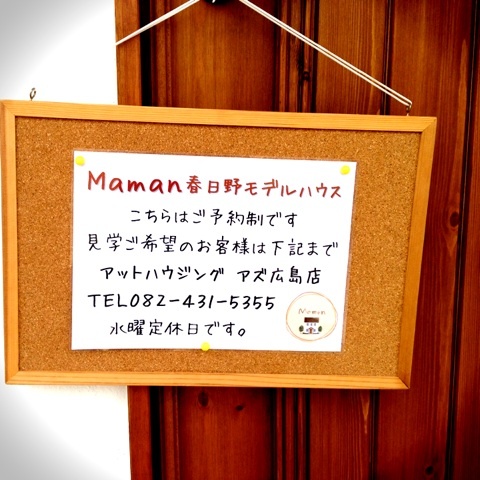 Maman春日野モデルハウス
こちらはご予約制です
見学ご希望のお客様は下記まで
アットハウジング アズ広島店
TEL082-431-5355
水曜定休日です。
Maman